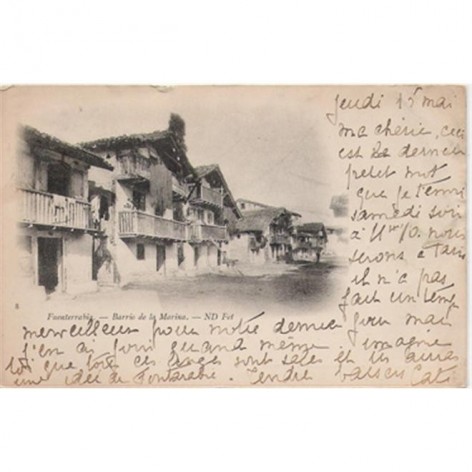 jeudi 15 mai
ma chérie, ceci
est le dernier
petit mot
que je t'envoie
samedi soir
à 11 h nous
serons à Paris
il n'a pas
fait un temps
8
Fuenterrabia. — Barrio de la Marina. — ND Fot
merveilleux pour notre dernier jour mais
j'en ai joui quand même. imagine
toi que tous ces pays sont sales et tu auras
une idée de Fontarabie. Tendres baisers Cat